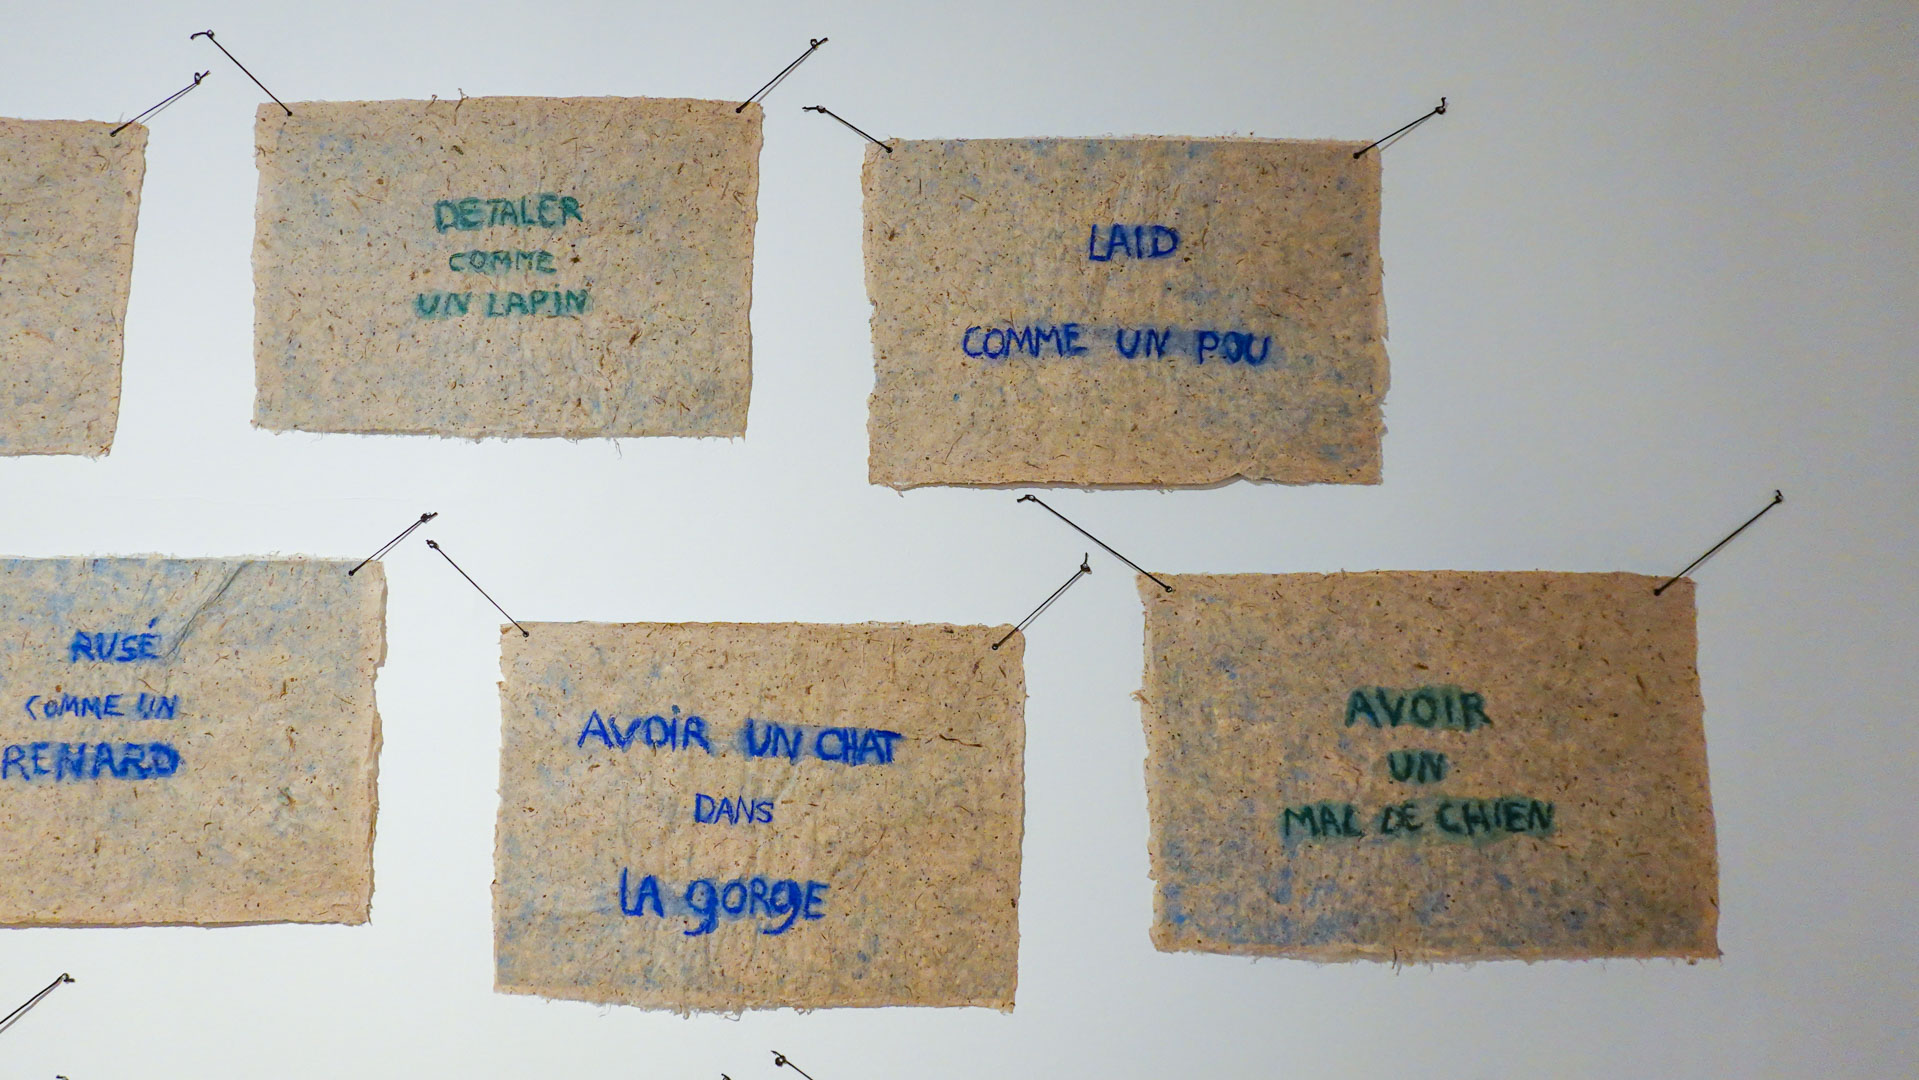 DETALER
COMME
UN LAPiN
LAID
COMME UN POU
RUSÉ
COMME UN
RENARD
AVOiR UN CHAT
DANS
LA gORgE
AVOIR
UN
MAL DE CHIEN